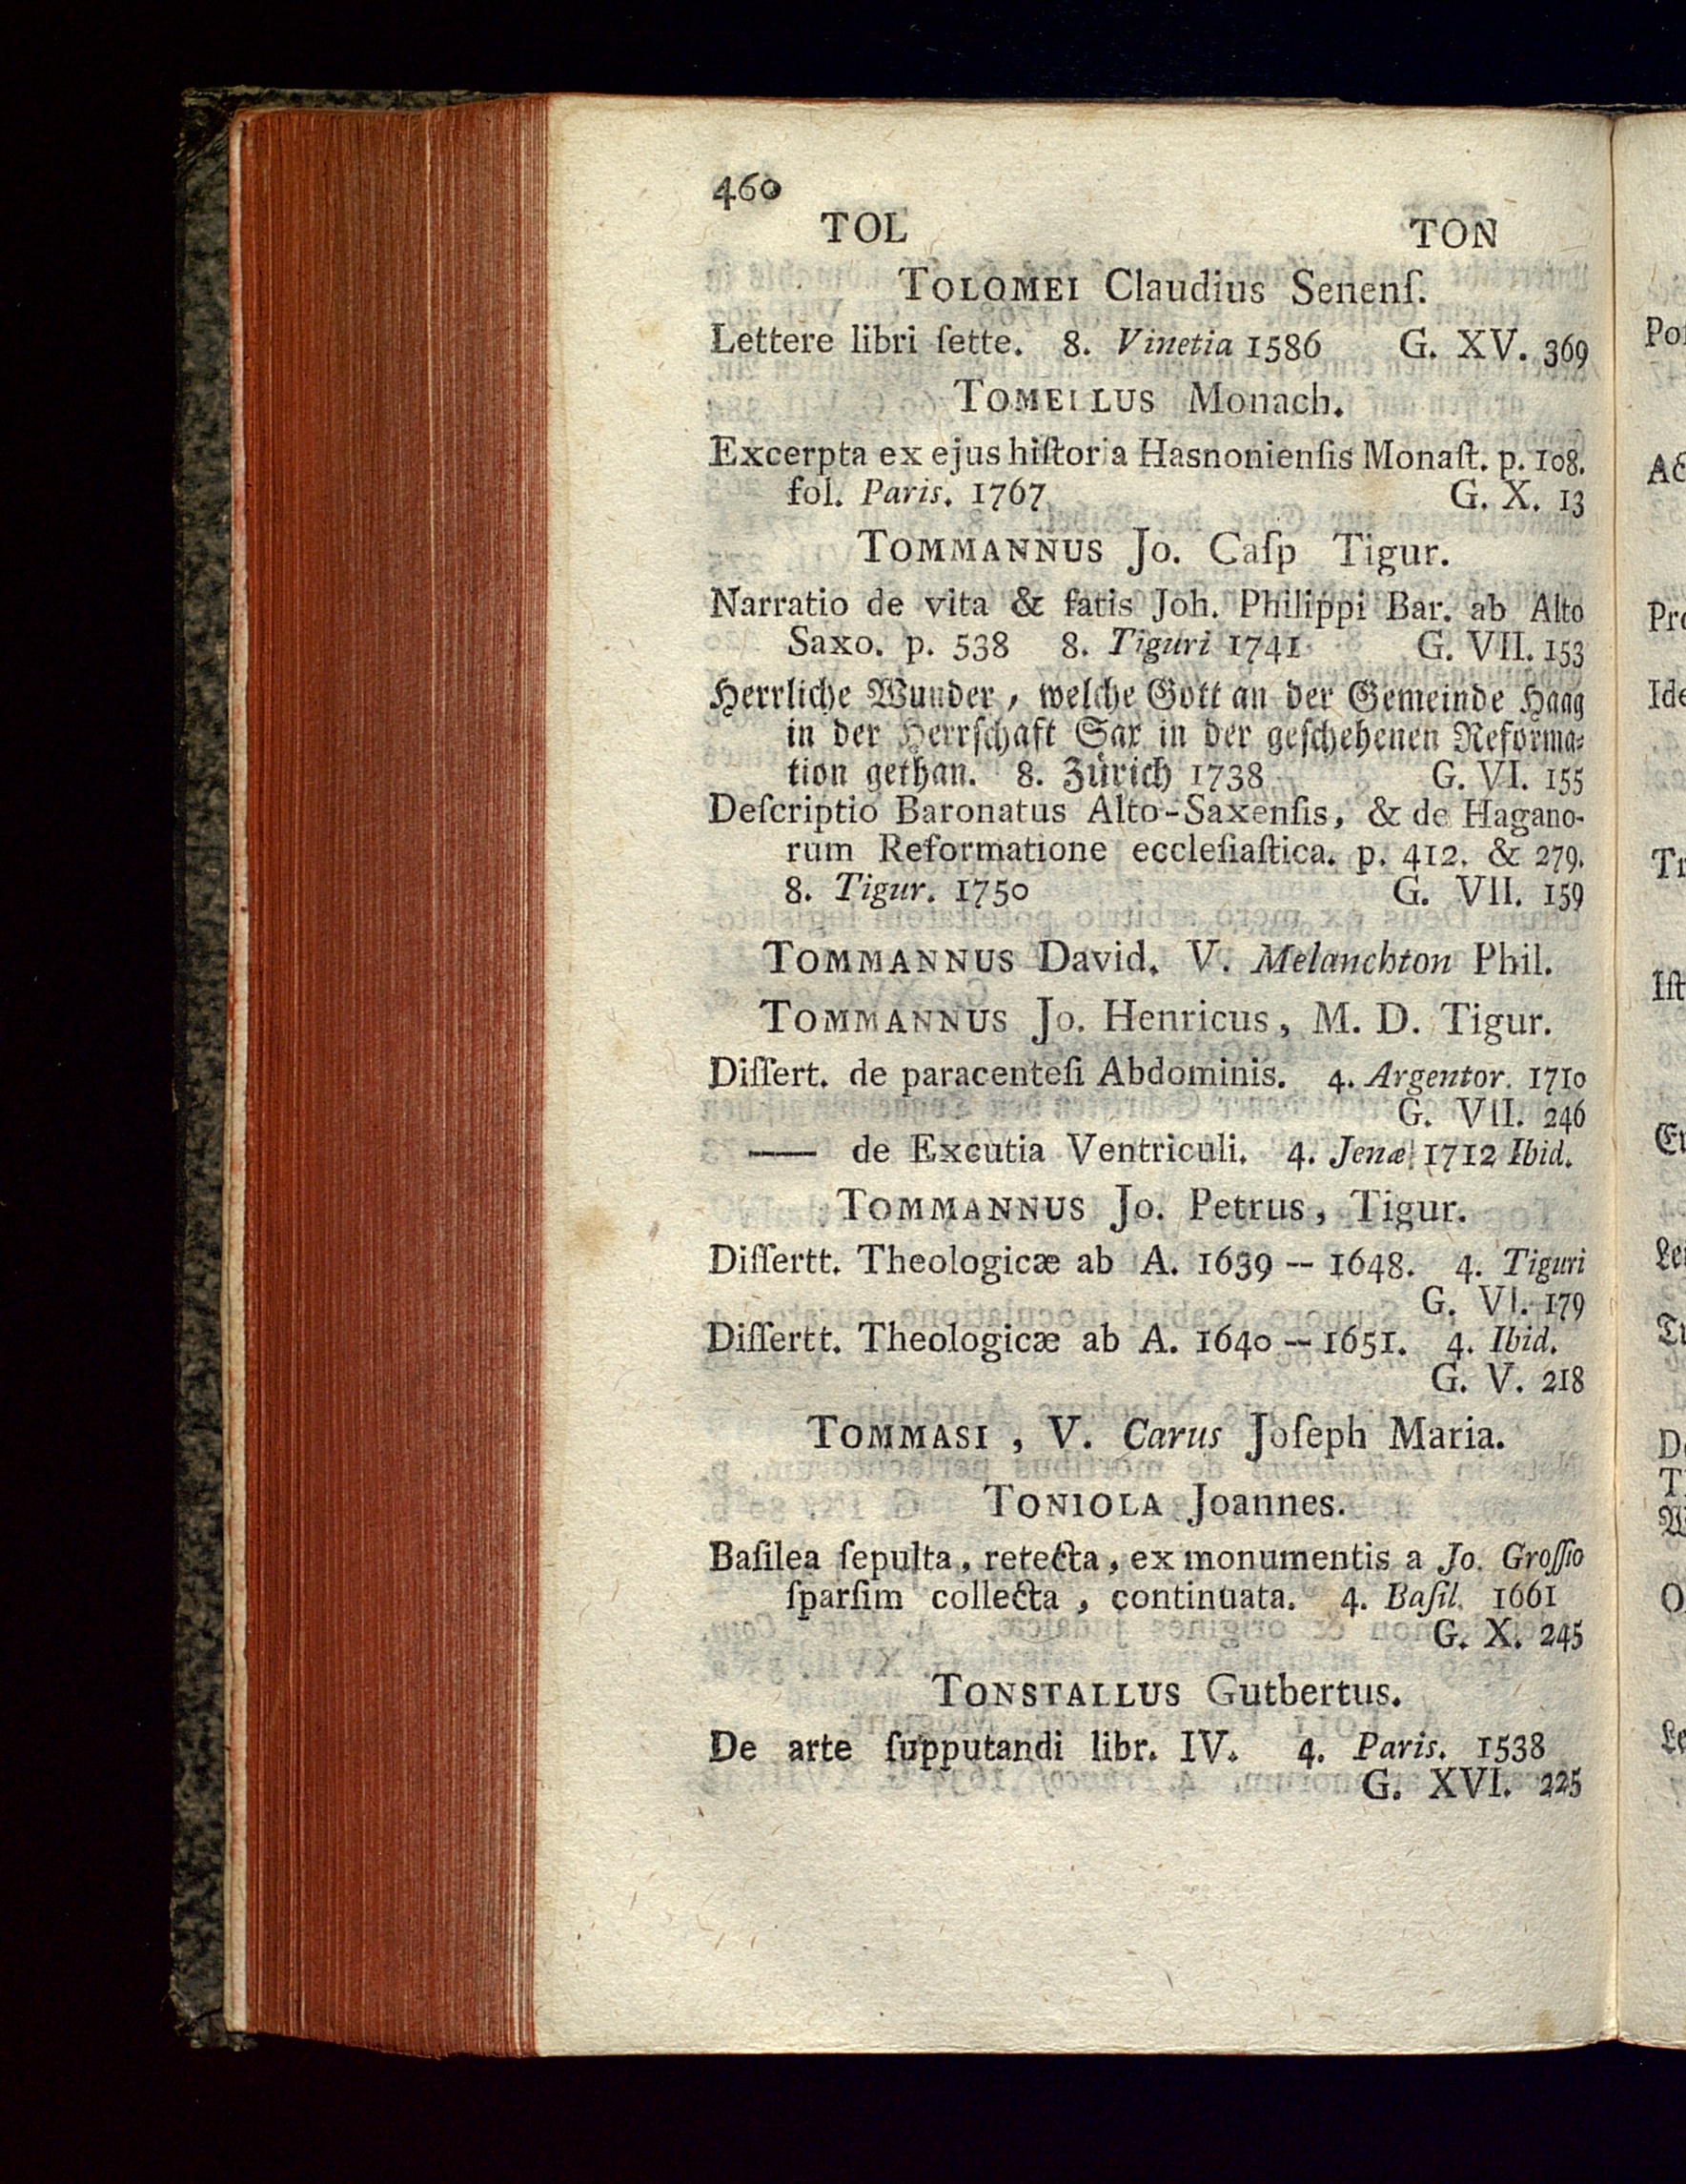 460
TOL TON
TOLOMEI Claudius Senenſ.
Lettere libri ſette. 8. Vinetia 1586 G. XV. 369
TOMELLUS Monach.
Excerpta ex ejus hiſtoria Hasnonienſis Monaſt. p. 108.
fol. Paris. 1767 G. X. 13
TOMMANNUS Jo. Caſp Tigur.
Narratio de vita & fatis Joh. Philippi Bar. ab Alto
Saxo. p. 538 8. Tiguri 1741 G. VII. 153
Herrliche Wunder, welche Gott an der Gemeinde Haag
in der Herrſchaft Sax in der geſchehenen Reforma⸗
tion gethan. 8. Zürich 1738 G. VI. 155
Deſcriptio Baronatus Alto-Saxenſis, & de Hagano-
rum Reformatione eccleſiaſtica. p. 412. & 279.
8. Tigur. 1750 G. VII. 159
TOMMANNUS David. V. Melanchton Phil.
TOMMANNUS Jo. Henricus, M. D. Tigur.
Diſſert. de paracenteſi Abdominis. 4. Argentor. 1710
G. VII. 246
—— de Excutia Ventriculi. 4. Jenæ 1712 Ibid.
TOMMANNUS Jo. Petrus, Tigur.
Diſſertt. Theologicæ ab A. 1639 — 1648. 4. Tiguri
G. VI. 179
Diſſertt. Theologicæ ab A. 1640 — 1651. 4. Ibid.
G. V. 218
TOMMASI, V. Carus Joſeph Maria.
TONIOLA Joannes.
Baſilea ſepulta, retecta, ex monumentis a Jo. Groſſio
ſparſim collecta, continuata. 4. Baſil. 1661
G. X. 245
TONSTALLUS Gutbertus.
De arte ſupputandi libr. IV. 4. Paris. 1538
G. XVI. 225